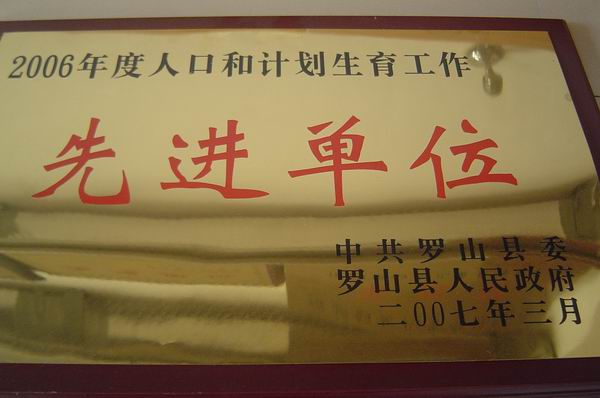 2006年度人口和计划生育工作
先进单位
中共罗山县委
罗山县人民政府
二00七年三月